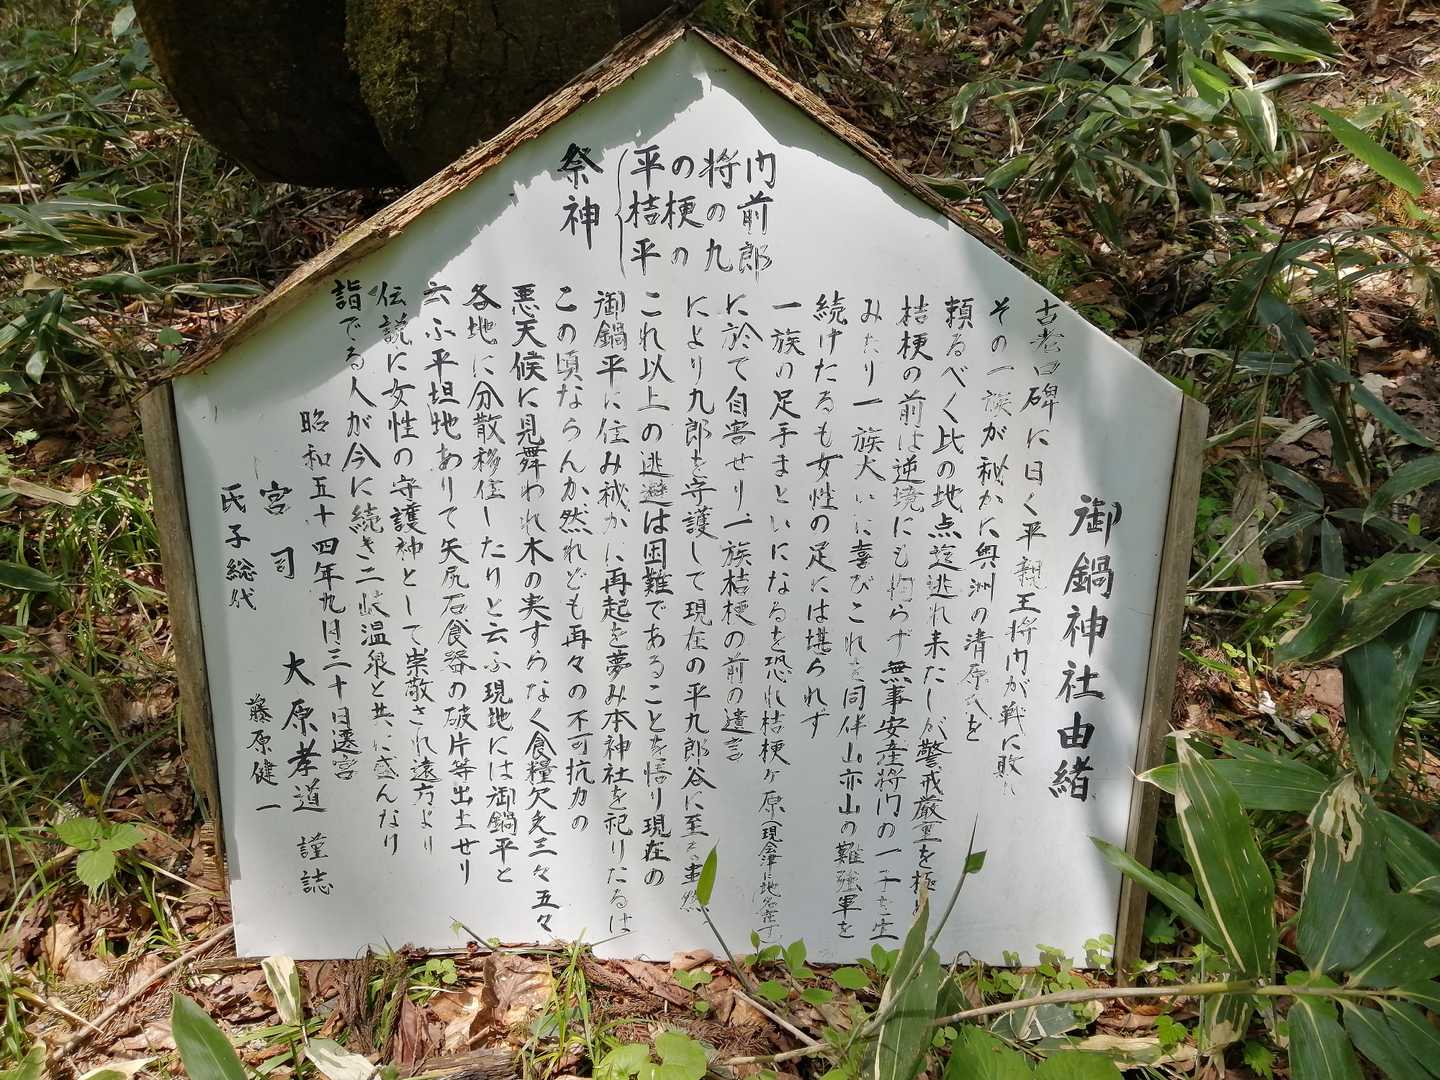 御鍋神社由緒
祭神
平桔平
の梗の
将の九
門前郎
古老口碑に曰く平親王将門が戦に敗れ
その一族が秘かに奥洲の清原氏を
頼るべく此の地点迄逃れ来たしが警戒厳重を極
桔梗の前は逆境にも拘らず無事安産将門の一子を生
みたり一族大いに喜びこれを同伴山亦山の難強軍を
続けたるも女性の足には堪られず
一族の足手まといになるを恐れ桔梗ヶ原(現会津に地名
に於て自害せり一族桔梗の前の遺言
により九郎を守護して現在の平九郎谷に至る
これ以上の逃避は困難であることを悟り現在の
御鍋平に住み秘かに再起を夢み本神社を祀りたるは
この頃ならんか然れども再々の不可抗力の
悪天候に見舞われ木の実すらなく食糧欠乏三々五々
各地に分散移住したりと云ふ現地には御鍋平と
云ふ平坦地ありて矢尻石食器の破片等出土せり
伝説に女性の守護神として崇敬され遠方より
詣でる人が今に続き二岐温泉と共に盛んなり
昭和五十四年九月三十日遷宮
宮司 大原孝道 謹誌
氏子総代 藤原健一